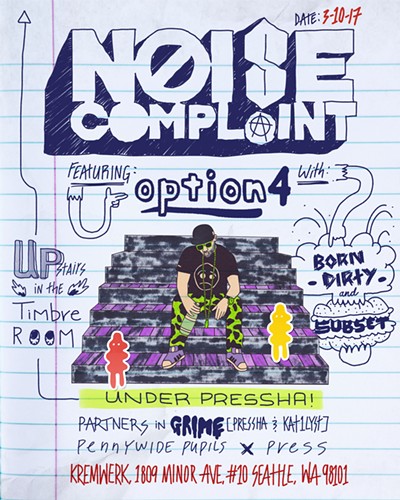 DATE: 3-10-17
NOISE
COMPLAINT
FEATURING:
option4
With:
BORN
-DIRTY-
and
SUBSET
UPstairs
in the
Timbre
ROOM
UNDER PRESSHA!
PARTNERS in GRIME [PRESSHA & KAT1LYST]
Pennywide Pupils x Press
KREMWERK, 1809 MINOR AVE, #10 SEATTLE, WA 98101